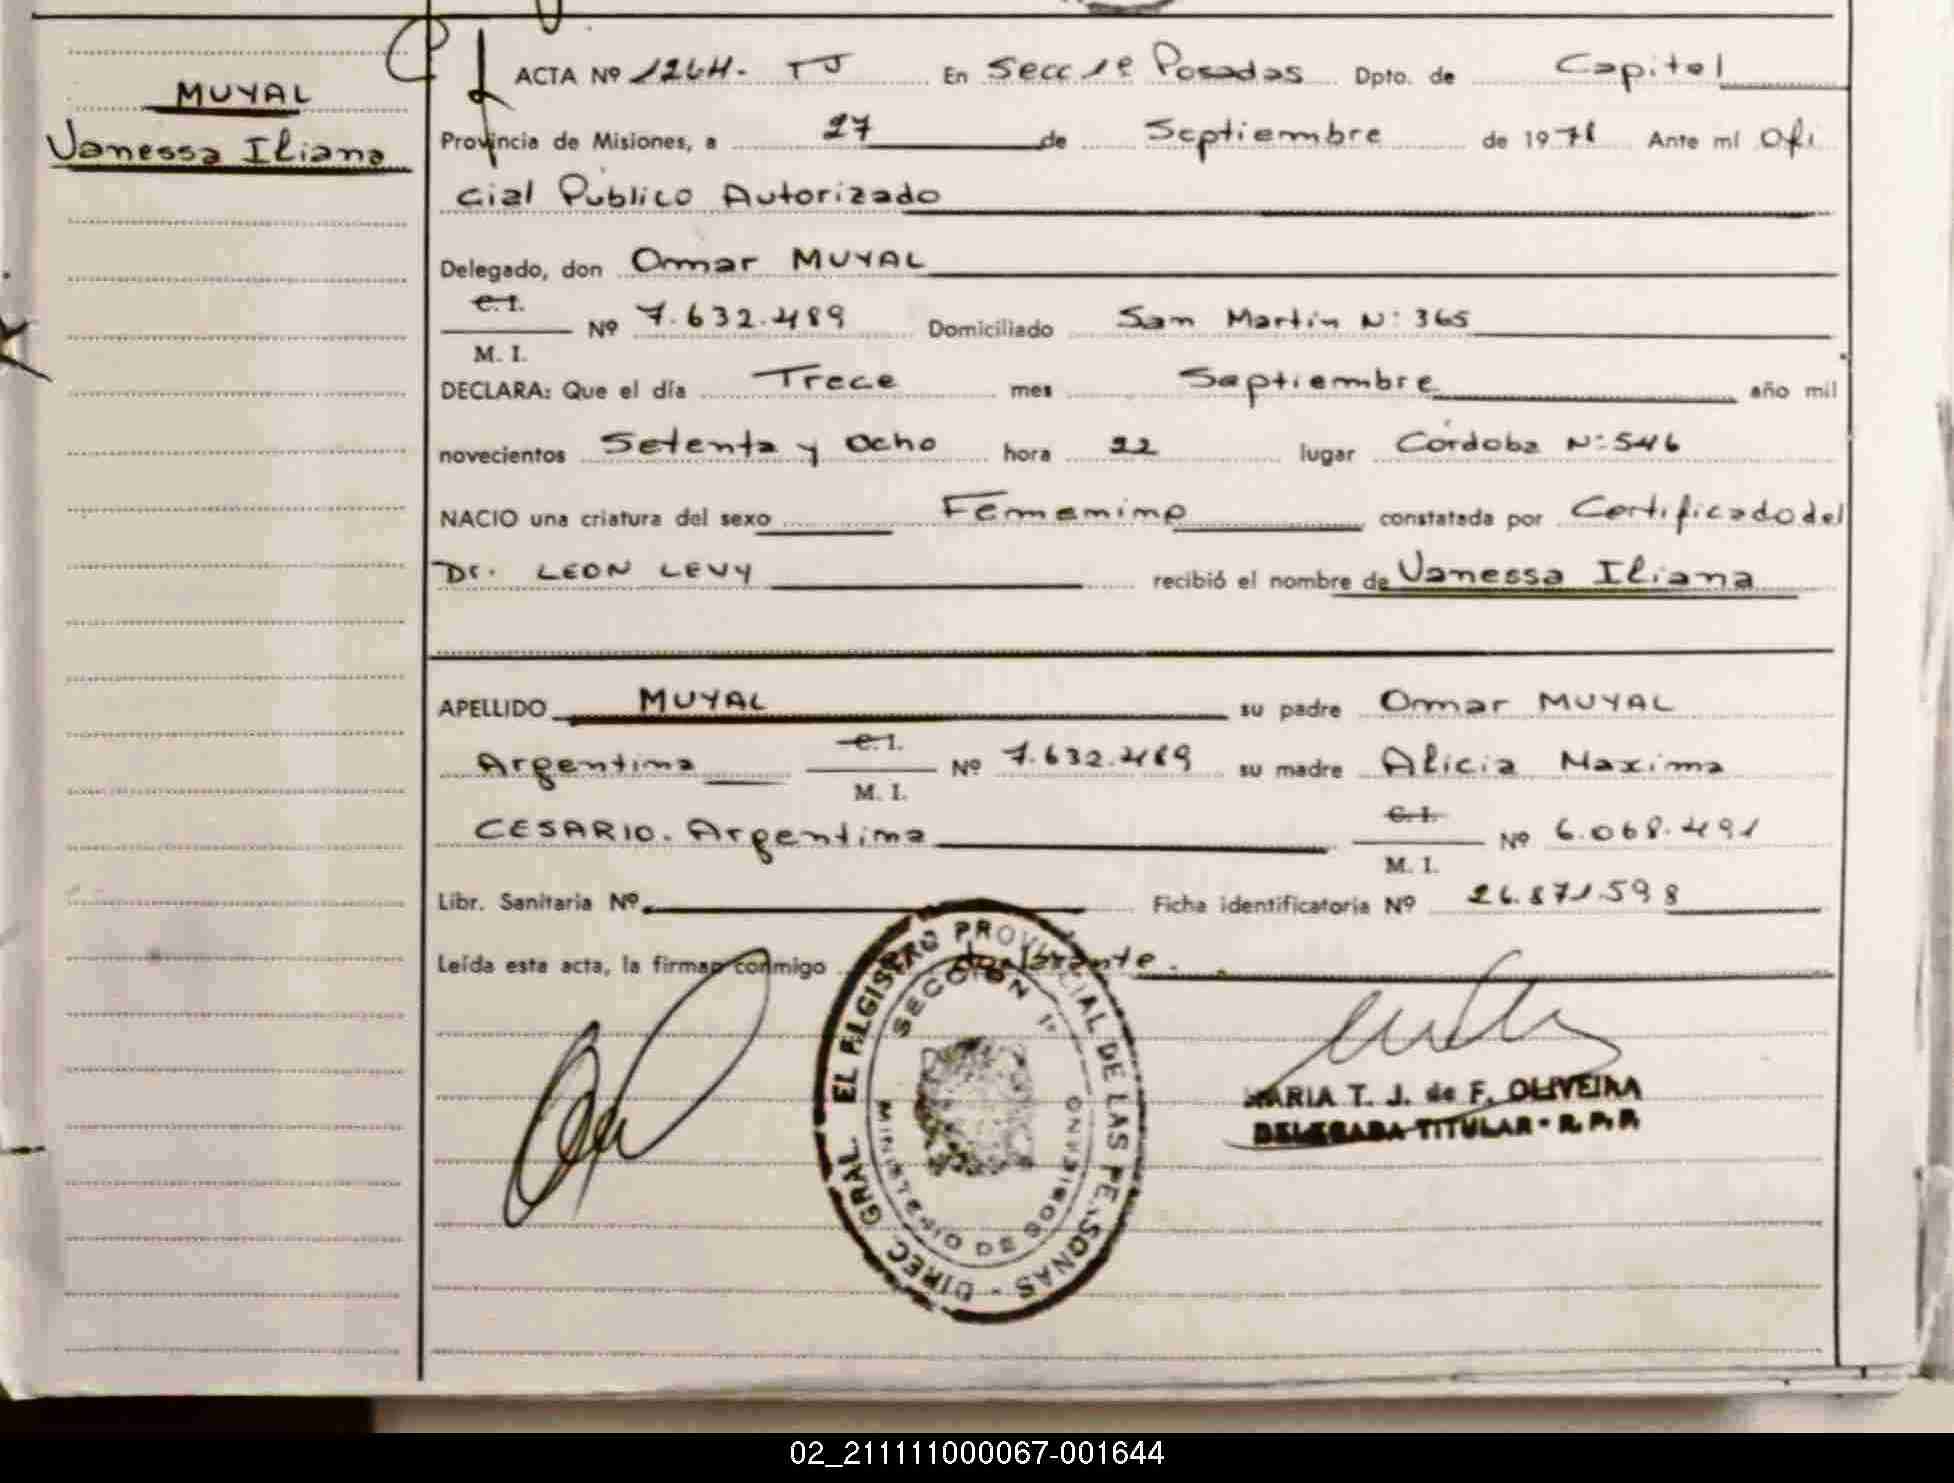 MUYAL
Vanessa Iliana
ACTA Nº 1264- TJ En Secc 1ª Posadas Dpto. de Capital
Provincia de Misiones, a 27 de Septiembre de 1978 Ante mí Ofi
cial Público Autorizado
Delegado, don Omar MUYAL
C. I.
Nº 7.632.489 Domiciliado San Martín Nº 365
M. I.
DECLARA: Que el día Trece mes Septiembre año mil
novecientos Setenta y Ocho hora 22 lugar Córdoba Nº 546
NACIO una criatura del sexo Femenino constatada por Certificado del
Dr. LEON LEVY recibió el nombre de Vanessa Iliana
APELLIDO MUYAL su padre Omar MUYAL
C. I.
Argentina Nº 7.632.489 su madre Alicia Maxima
M. I.
C. I.
CESARIO. Argentina Nº 6.068.491
M. I.
Libr. Sanitaria Nº Ficha identificatoria Nº 26.871.598
Leída esta acta, la firman conmigo
DIREC. GRAL. EL REGISTRO PROVINCIAL DE LAS PERSONAS -
SECCION 1ª
MINISTERIO DE GOBIERNO
MARIA T. J. de F. OLIVEIRA
DELEGADA TITULAR - R. P. P.
02_211111000067-001644